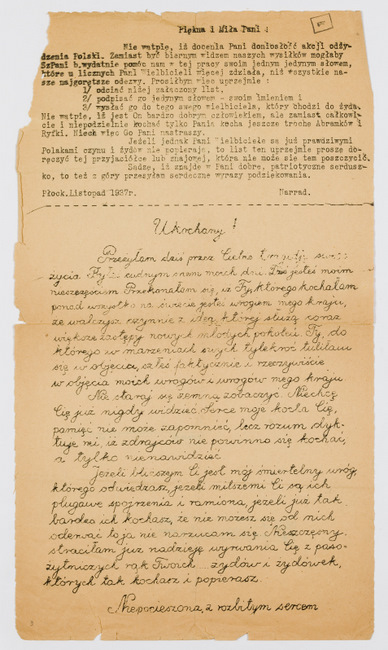 Piękna i Miła Pani !
Nie wątpię, iż docenia Pani doniosłość akcji odży-
dzenia Polski. Zamiast być biernym widzem naszych wysiłków mogłaby
SzPani b.wydatnie pomóc nam w tej pracy swoim jednym jedynym słowem,
które u licznych Pani Wielbicieli więcej zdziała, niż wszystkie na-
sze najgorętsze odezwy. Prosiłbym więc uprzejmie :
1/ odciąć niżej załączony list.
2/ podpisać go jednym słowem - swoim imieniem i
3/ wysłać go do tego swego wielbiciela, który chodzi do żyda.
Nie wątpię, iż jest On bardzo dobrym człowiekiem, ale zamiast całkowi-
cie i niepodzielnie kochać tylko Panią kocha jeszcze trochę Abramków i
Ryfki. Niech więc Go Pani nastraszy.
Jeżeli jednak Pani Wielbiciele są już prawdziwymi
Polakami czynu i żydów nie popierają, to list ten uprzejmie proszę do-
ręczyć tej przyjaciółce lub znajomej, która nie może się tem poszczycić.
Sądzę, iż znajdę w Pani dobre, patriotyczne serdusz-
ko, to też z góry przesyłam serdeczne wyrazy podziękowania.
Płock.Listopad 1937r. Narrad.
Ukochany !
Przesyłam dziś przez Ciebie tragedję swego
życia Byłeś cudnym snem moich dni. Dziś jesteś moim
nieszczęściem Przekonałam się, iż Ty którego kochałam
ponad wszystko na świecie jesteś wrogiem mego kraju,
że walczysz czynnie z ideą, której służą coraz
większe zastępy nowych młodych pokoleń. Ty, do
którego w marzeniach swych tylekroć tuliłam
się w objęciu, szłeś faktycznie i rzeczywiście
w objęcia moich wrogów i wrogów mego kraju
Nie staraj się ze mną zobaczyć. Niechcę
Cię już nigdy widzieć. Serce moje kocha Cię,
pamięć nie może zapomnieć, lecz rozum dyk-
tuje mi, iż zdrajców nie powinno się kochać,
a tylko nienawidzieć
Jeżeli bliższym Ci jest mój śmiertelny wróg,
którego odwiedzasz, jeżeli milszemi Ci są ich
plugawe spojrzenia i ramiona, jeżeli już tak
bardzo ich kochasz, że nie możesz się od nich
oderwać to ja nie narzucam się. Nieszczęsny,
straciłam już nadzieję wyrwania Cię z paso-
żytniczych rąk Twoich żydów i żydówek,
których tak kochasz i popierasz.
Niepocieszona, z rozbitym sercem